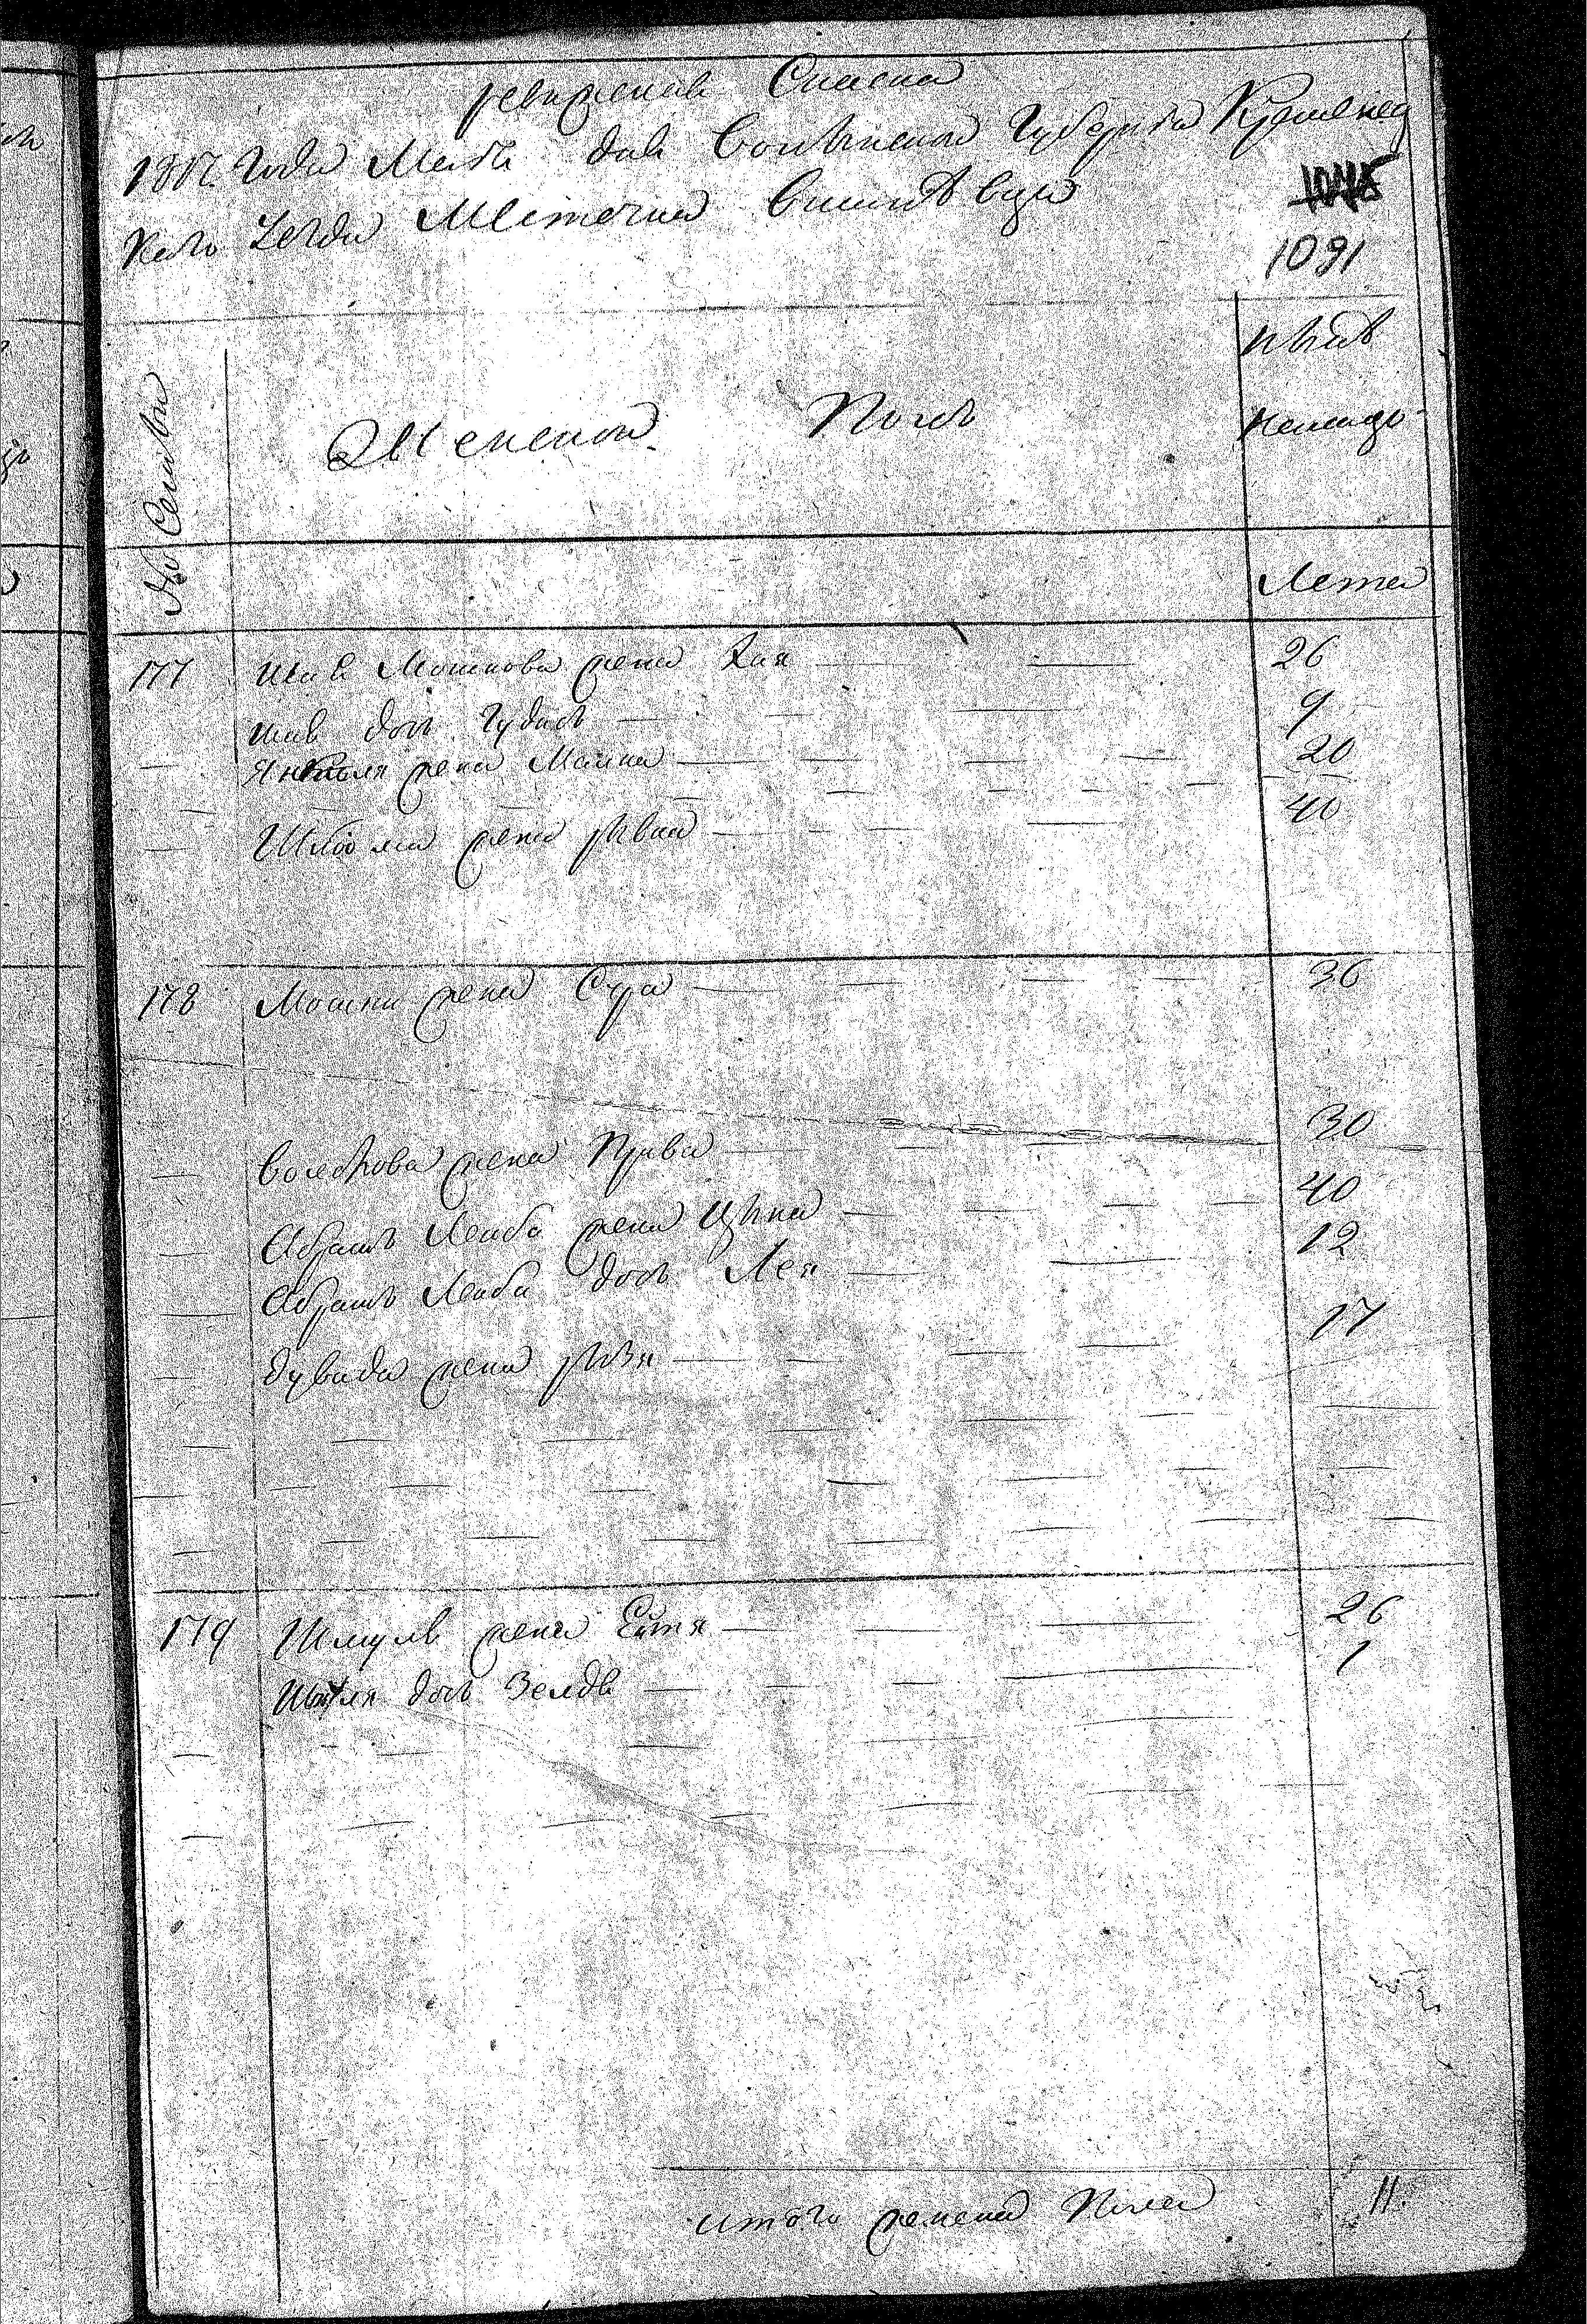 Ревижская Сказка
181 года Маія дня Волынской Губерніи Кременец
каго Уезда Местечка Вишневца
1091
№ Семьи
Женской Полъ
ныне
налицо
Лета
177 Шае Мошкова жена Хая 26
Шае дочь Гудись 9
Янкеля жена Малка 20
Шлиома жена ривка 40
178 Мошки жена Сура 36
Волькова жена 30
Абрамъ Лейба жена Ципа 40
Абрамъ Лейба дочь Лея 12
дувида жена 17
179 Шмуля жена Ейтя 26
дочь Зелде 1
итого женска Пола 11.